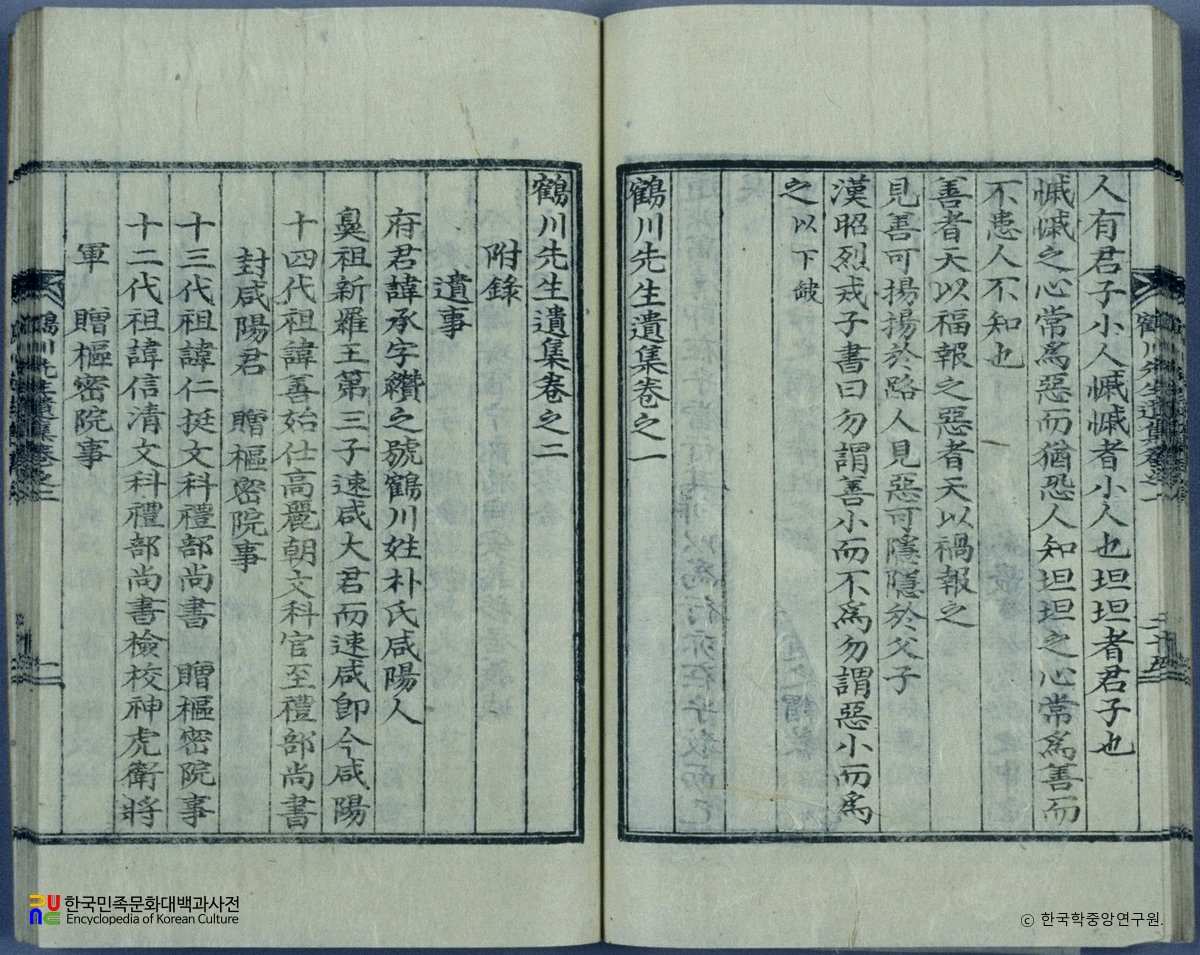 人有君子小人慽慽者小人也坦坦者君子也
慽慽之心常爲惡而猶恐人知坦坦之心常爲善而
不患人不知也
善者天以福報之惡者天以禍報之
見善可揚揚於路人見惡可隱隱於父子
漢昭烈戒子書曰勿謂善小而不爲勿謂惡小而爲
之以下缺
鶴川先生遺集卷之一
鶴川先生遺集卷之二
附錄
遺事
府君諱承字纘之號鶴川姓朴氏咸陽人
鼻祖新羅王第三子速咸大君而速咸卽今咸陽
十四代祖諱善始仕高麗朝文科官至禮部尚書
封咸陽君 贈樞密院事
十三代祖諱仁挺文科禮部尚書 贈樞密院事
十二代祖諱信清文科禮部尚書檢校神虎衛將
軍 贈樞密院事
鶴川先生遺集卷之二
한국민족문화대백과사전
Encyclopedia of Korean Culture
ⓒ 한국학중앙연구원.